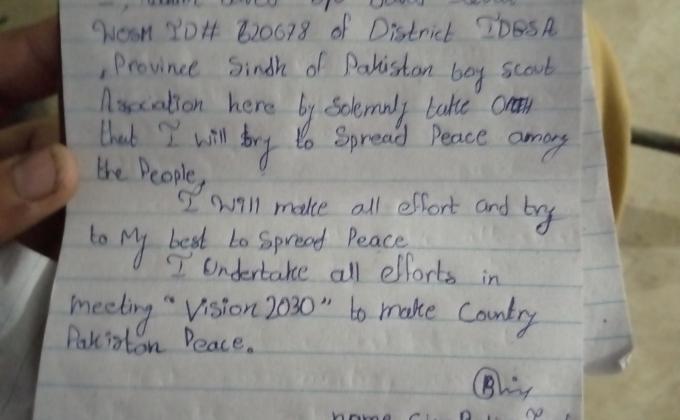 WOSM ID# 620678 of District IDBSA
, Province Sindh of Pakistan boy scout
Association here by Solemnly take OATH
that I will try to Spread Peace among
the People,
I Will make all effort and try
to My best to Spread Peace
I Undertake all efforts in
meeting "Vision 2030" to make Country
Pakiston Peace.